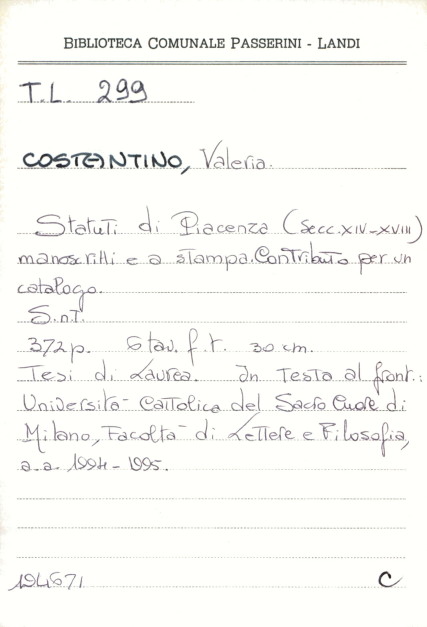 BIBLIOTECA COMUNALE PASSERINI - LANDI
T.L. 299
COSTANTINO, Valeria.
Statuti di Piacenza (secc. XIV-XVIII)
manoscritti e a stampa. Contributo per un
catalogo.
S.n.t.
372 p. 6 tav. f.t. 30 cm.
Tesi di Laurea. In testa al front.:
Università Cattolica del Sacro Cuore di
Milano, Facoltà di Lettere e Filosofia,
a.a. 1994-1995.
194671 C